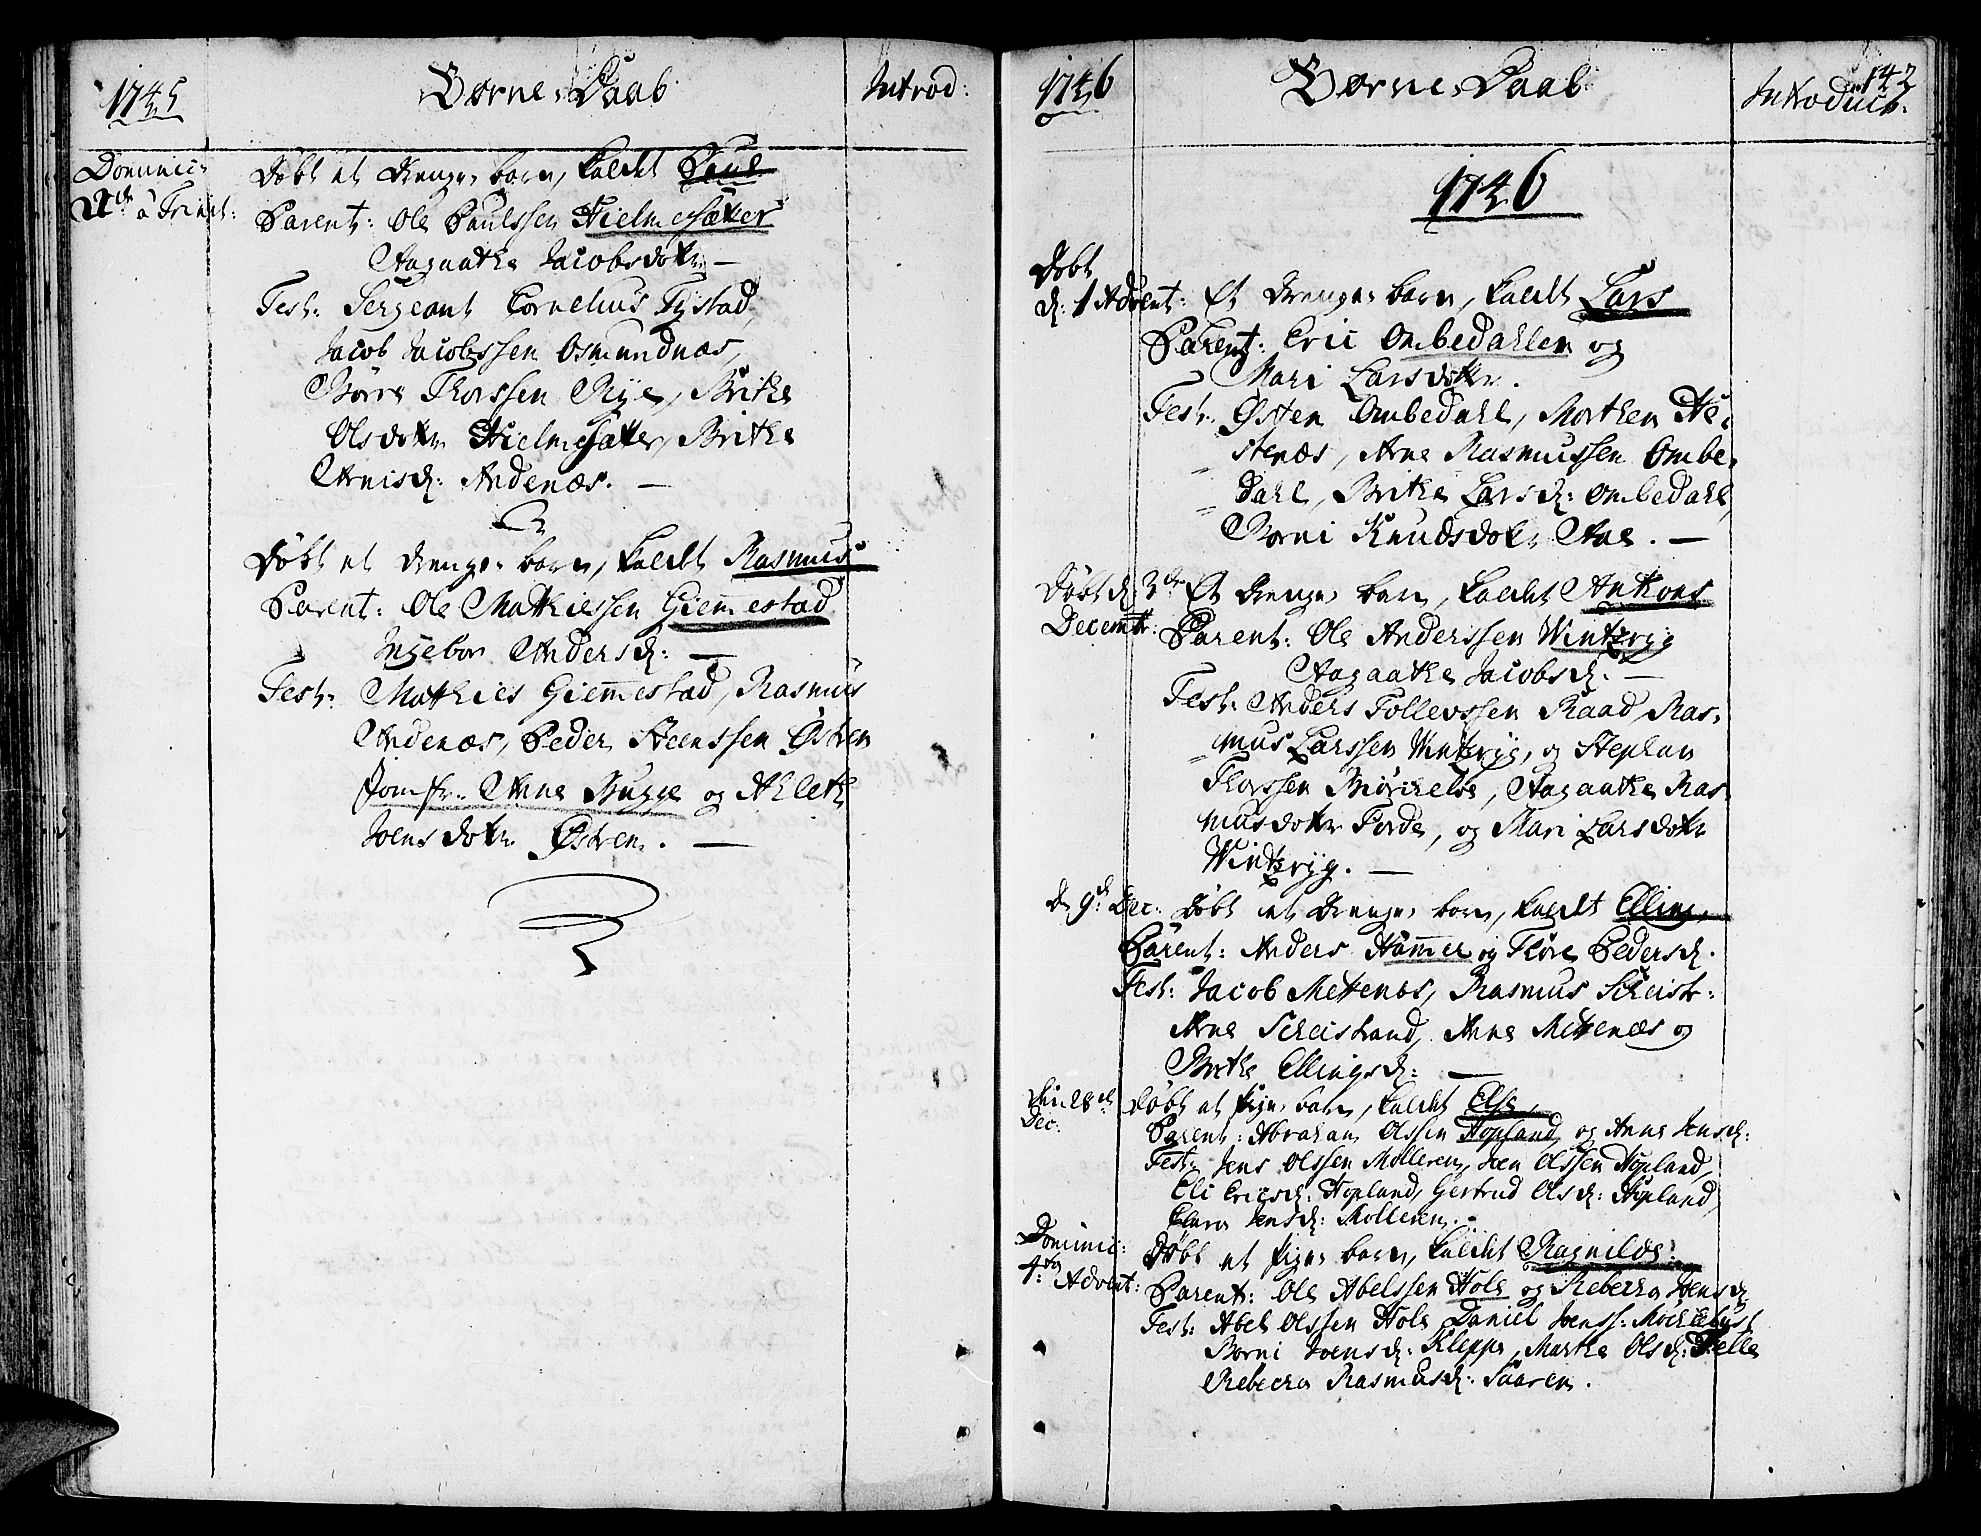 1745 Børne Daab Introd:
Dominic:
à Trinit: Døbt et Drenge barn, kaldt Paul
Parent: Ole Paulssen Hielmesæter
Aagaathe Jacobsdotr —
Test: Sergeant Cornelius Tystad,
Jacob Jacobssen Osmundnæs,
Børe Thorssen Rye, Brithe
Olsdotr Hielmesæter, Brithe
Arnisd: Andenæs. —
Døbt et Drenge barn, kaldt Rasmus
Parent: Ole Mathiessen Giemestad
Ingebor Andersd: —
Test: Mathies Giemestad, Rasmus
Andenæs, Peder Steenssen Østren
Jomfr: Anne Bugge og Ahleth
Joensdotr Østren. —
1746 Børne Daab Introduct: 142
1746
Døbt
d: 1 Advent: Et Drenge barn, kaldt Lars
Parent: Eric Ombedahlen og
Mari Larsdotr.
Test: Østen Ombedahl, Morthen He-
stenæs, Arne Rasmussen Ombe-
dahl, Brithe Larsd: Ombedahl,
Borni Knudsdotr Aae. —
Døbt d: 3de Et Drenge barn, kaldt Anthons
Decembr: Parent: Ole Anderssen Wintzryg
Aagaathe Jacobsd. —
Test: Anders Tollevssen Raad, Ras-
mus Larssen Wintzryg, og Stephan
Thorssen Mörchelsø, Aagaathe Ras-
musdotr Førde, og Mari Larsdotr
Wintzryg. —
d 9d Dec: Døbt et Drenge barn, kaldt Elling,
Parent: Anders Hammer og Thøre Pedersd.
Test: Jacob Mettenæs, Rasmus Scheistr:
Arne Scheistrand, Anne Mettenæs og
Brithe Ellingsd: —
Den 28d Døbt et Pige barn, kaldt Else,
Dec: Parent: Abraham Olssen Hopland, og Anne Jensd:
Test: Jens Olssen Molleren, Joen Olssen Hopland,
Eli Ericsd: Hopland, Gertrud Olsd: Hopland,
Clara Jensd: Molleren.
Dominic: Døbt et Pige barn, kaldt Ragnilde:
4ta Advent: Parent: Ole Abelssen Hole og Rebecka Jensd
Test: Abel Olssen Hole Daniel Joenss: Möchlebust
Borni Joensd: Kleppe, Marthe Olsd: Helle
Rebecka Rasmusd: Saaren.